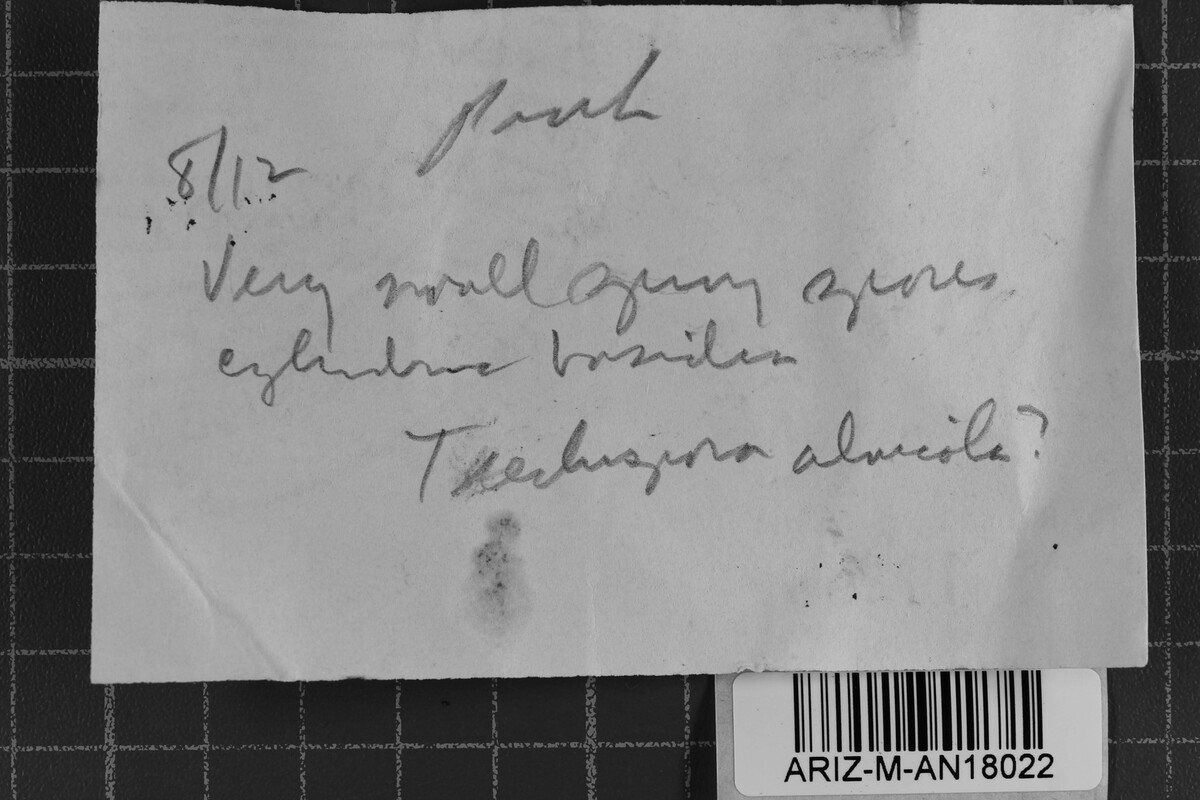 8/12
Very small spiny spores
cylindric basidia
Trechispora alnicola?
ARIZ-M-AN18022